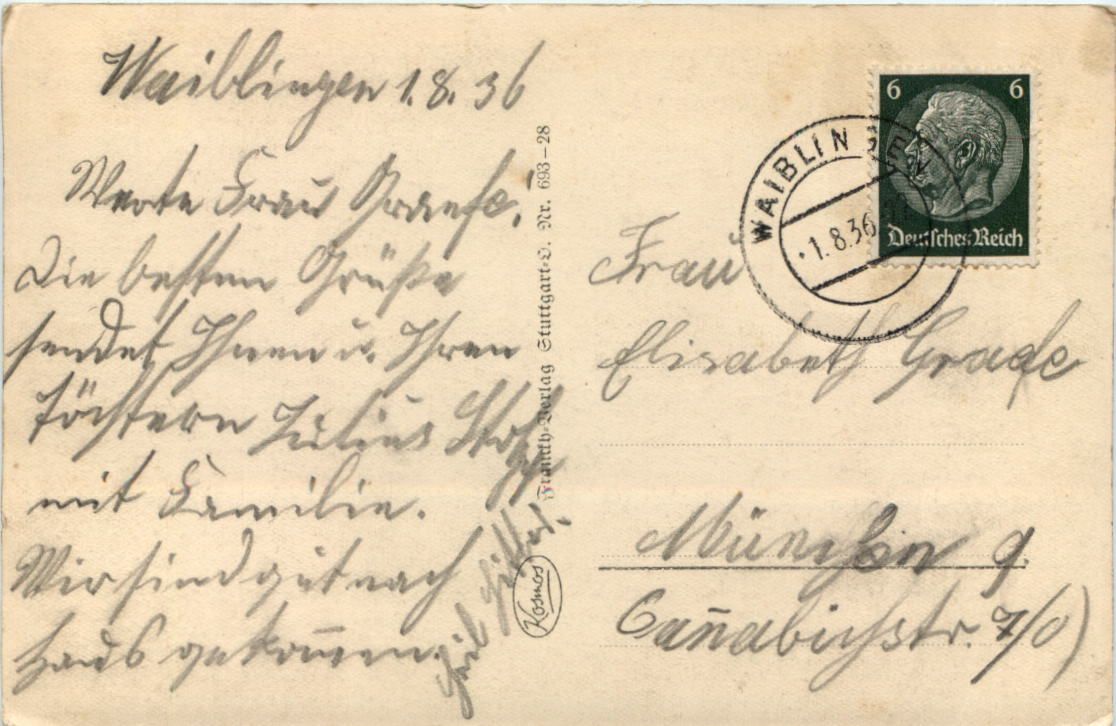 Waiblingen 1.8.36
Werte Frau Graefe!
Die besten Grüße
sendet Ihnen u. Ihren
Töchtern Julius
mit Familie.
Wir sind gut nach
Haus gekom̄en.
Heil Hitler.
Franckh-Verlag Stuttgart-O. Nr. 693–28
Kosmos
6 6
Deutsches Reich
WAIBLINGEN
1.8.36
Frau
Elisabeth Graefe
München 9
Can̄abichstr. 7/0)